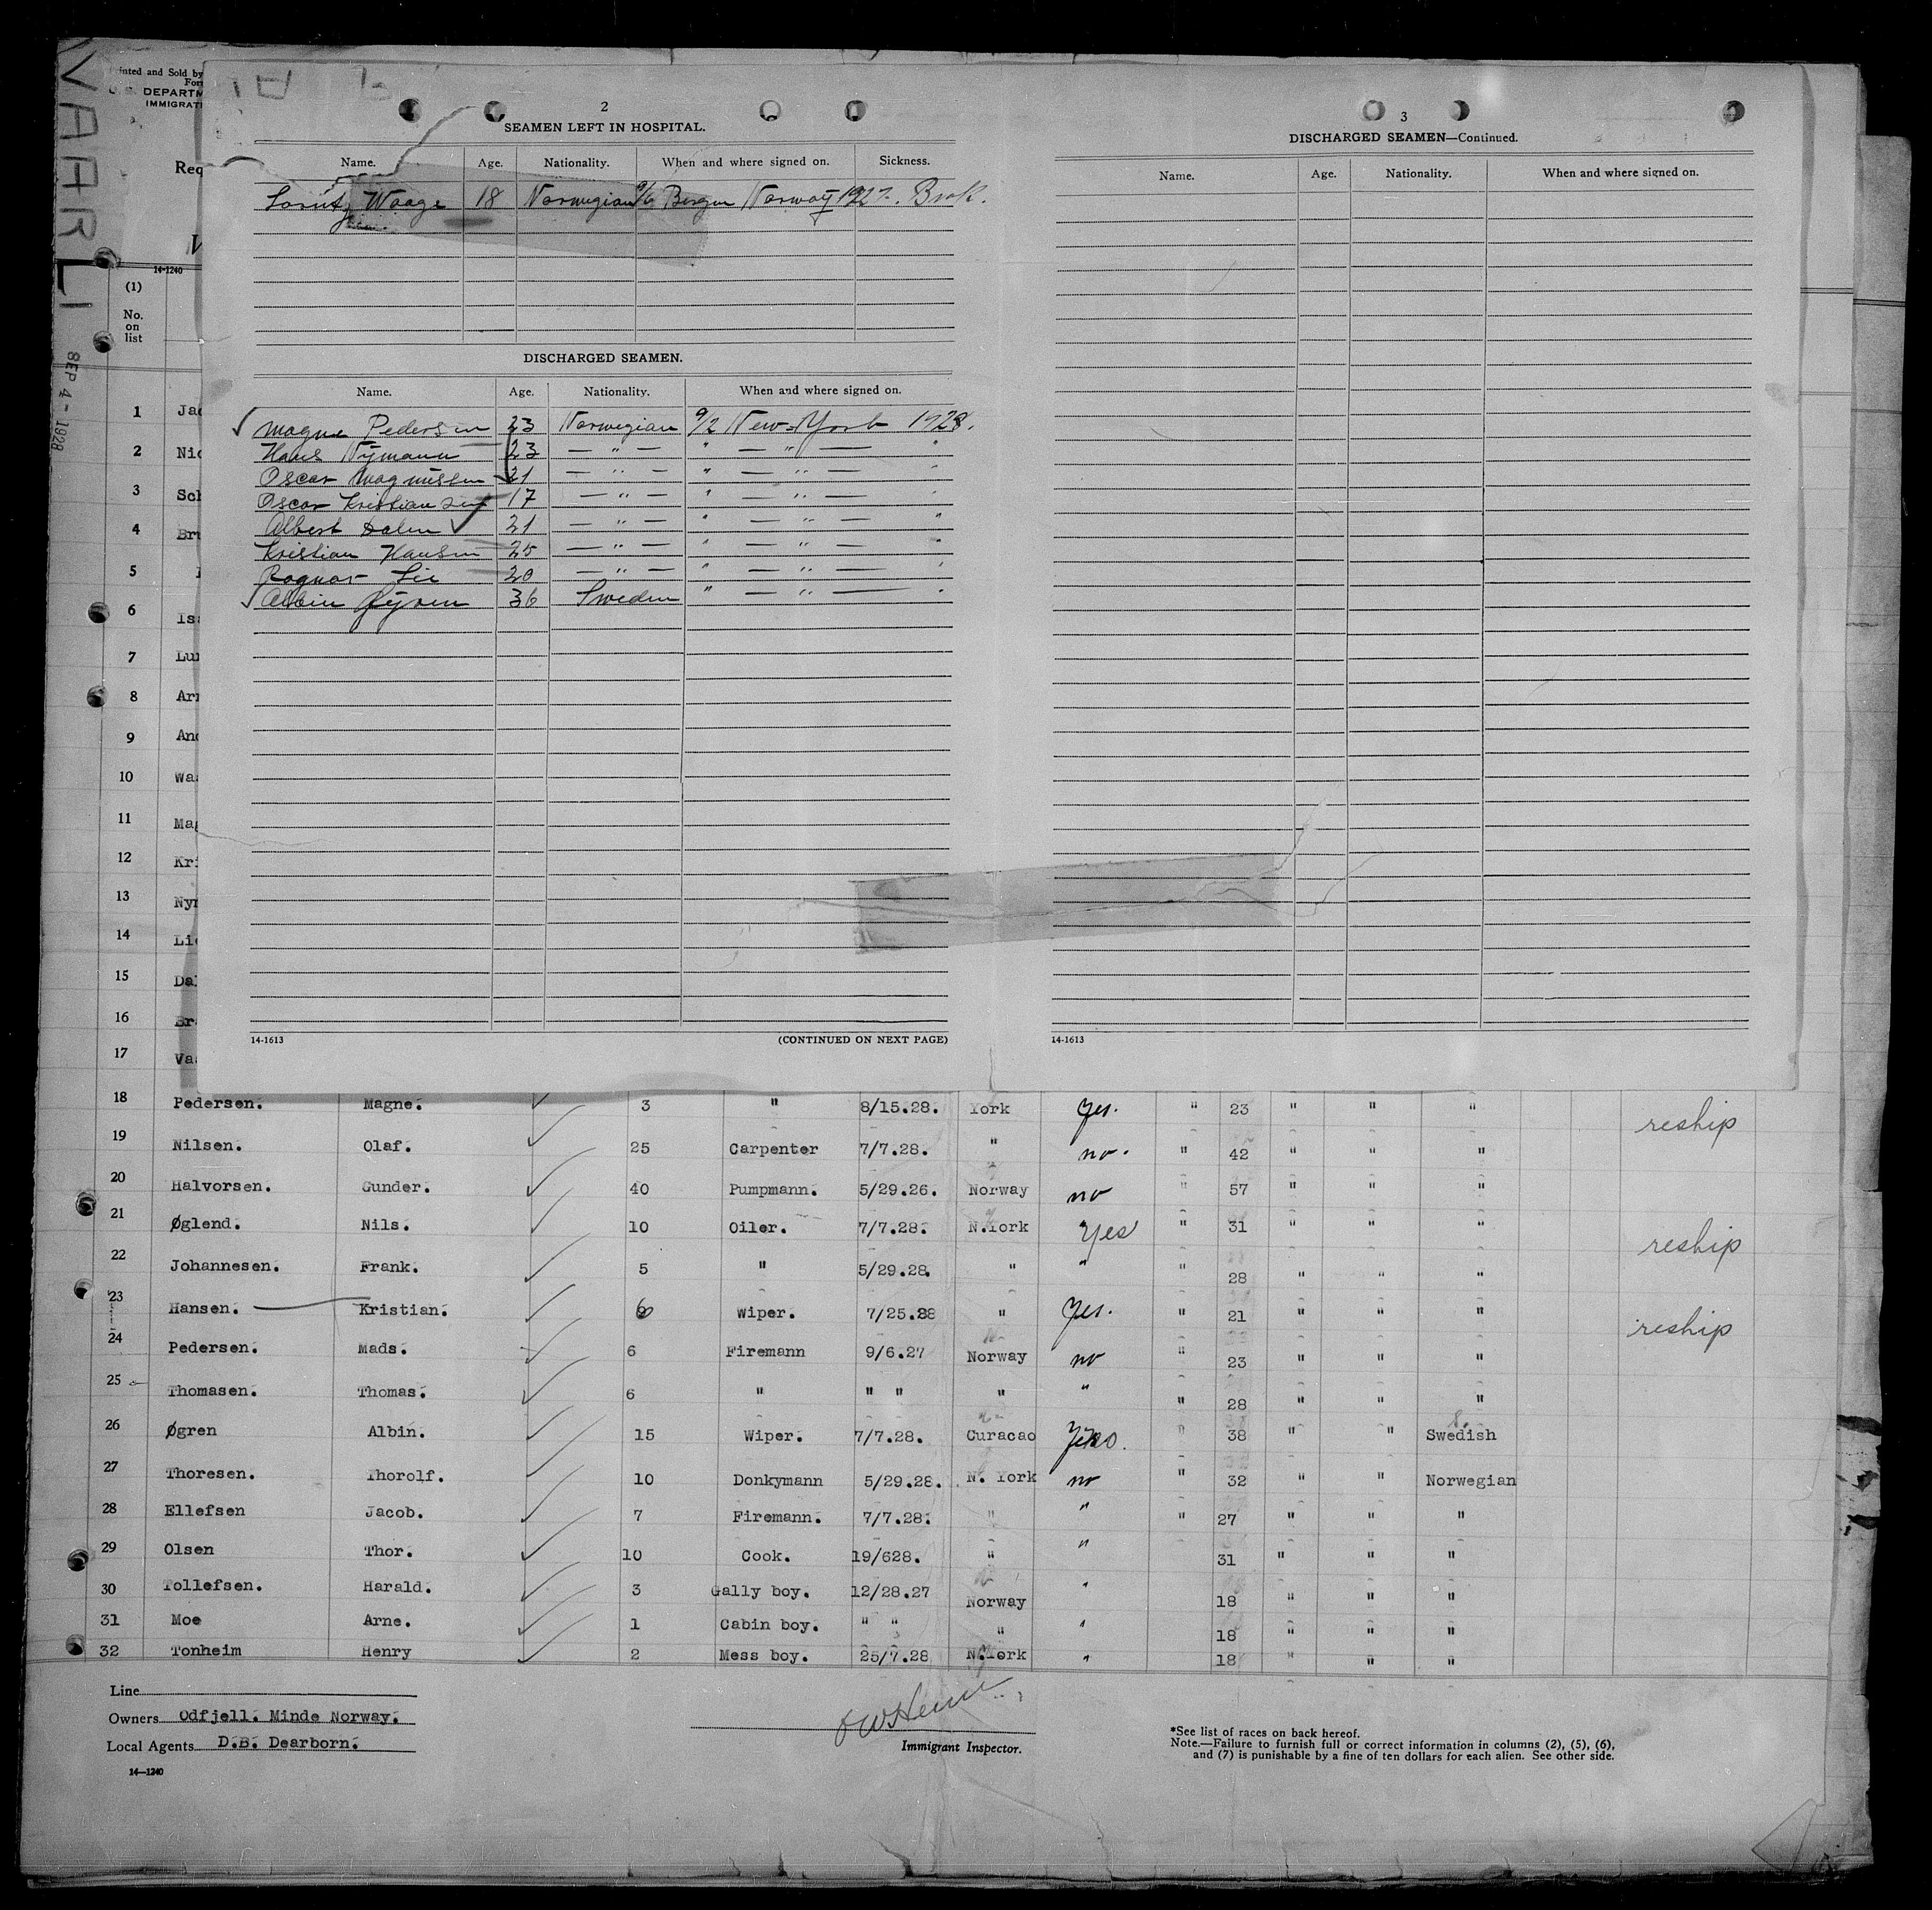 VAARLI
SEP 4 - 1928
Printed and Sold by
DEPARTM
IMMIGRATI
Req
14-1240
(1)
No.
on
list
2
SEAMEN LEFT IN HOSPITAL.
Name. Age. Nationality. When and where signed on. Sickness.
Waage 18 Norwegian 9/6 Bergen Norway 1927. Brok.
DISCHARGED SEAMEN.
Name. Age. Nationality. When and where signed on.
Magne Pedersen 23 Norwegian 9/2 New-York 1928.
Hans Nymann 23 — " — " — " — "
Oscar Magnussen 21 — " — " — " — "
Oscar Kristiansen 17 — " — " — " — "
Albert Dalen 21 — " — " — " — "
Kristian Hansen 25 — " — " — " — "
Ragnar Lie 20 — " — " — " — "
Albin Øgren 36 Sweden " — " — "
14-1613 (CONTINUED ON NEXT PAGE)
3
DISCHARGED SEAMEN—Continued.
Name. Age. Nationality. When and where signed on.
14-1613
1 Jac
2 Nic
3 Sch
4 Bru
5
6 Isa
7 Lun
8 Arn
9 And
10 Waa
11 Mag
12 Kri
13 Nym
14 Lie
15 Dal
16 Bra
17 Vaa
18 Pedersen. Magne. 3 " 8/15.28. York Yes. " 23 " " " reship
19 Nilsen. Olaf. 25 Carpenter 7/7.28. " no. " 42 " " "
20 Halvorsen. Gunder. 40 Pumpmann. 5/29.26. Norway no " 57 " " "
21 Øglend. Nils. 10 Oiler. 7/7.28. N.York Yes " 31 " " " reship
22 Johannesen. Frank. 5 " 5/29.28. " " " 28 " " "
23 Hansen. Kristian. 6 Wiper. 7/25.28 " Yes. " 21 " " " reship
24 Pedersen. Mads. 6 Firemann 9/6.27 Norway no " 23 " " "
25 Thomasen. Thomas. 6 " " " " " " 28 " " "
26 Øgren Albin. 15 Wiper. 7/7.28. Curacao " 38 " " Swedish
27 Thoresen. Thorolf. 10 Donkymann 5/29.28. N. York no " 32 " " Norwegian
28 Ellefsen Jacob. 7 Firemann. 7/7.28. " " " 27 " " "
29 Olsen Thor. 10 Cook. 19/628. " " 31 " " "
30 Tollefsen. Harald. 3 Gally boy. 12/28.27 Norway " 18 " " "
31 Moe Arne. 1 Cabin boy. " " " " 18 " " "
32 Tonheim Henry 2 Mess boy. 25/7.28 N.York " 18 " " "
Line
Owners Odfjell. Minde Norway.
Local Agents D.B. Dearborn.
14—1240
Immigrant Inspector.
*See list of races on back hereof.
Note.—Failure to furnish full or correct information in columns (2), (5), (6),
and (7) is punishable by a fine of ten dollars for each alien. See other side.